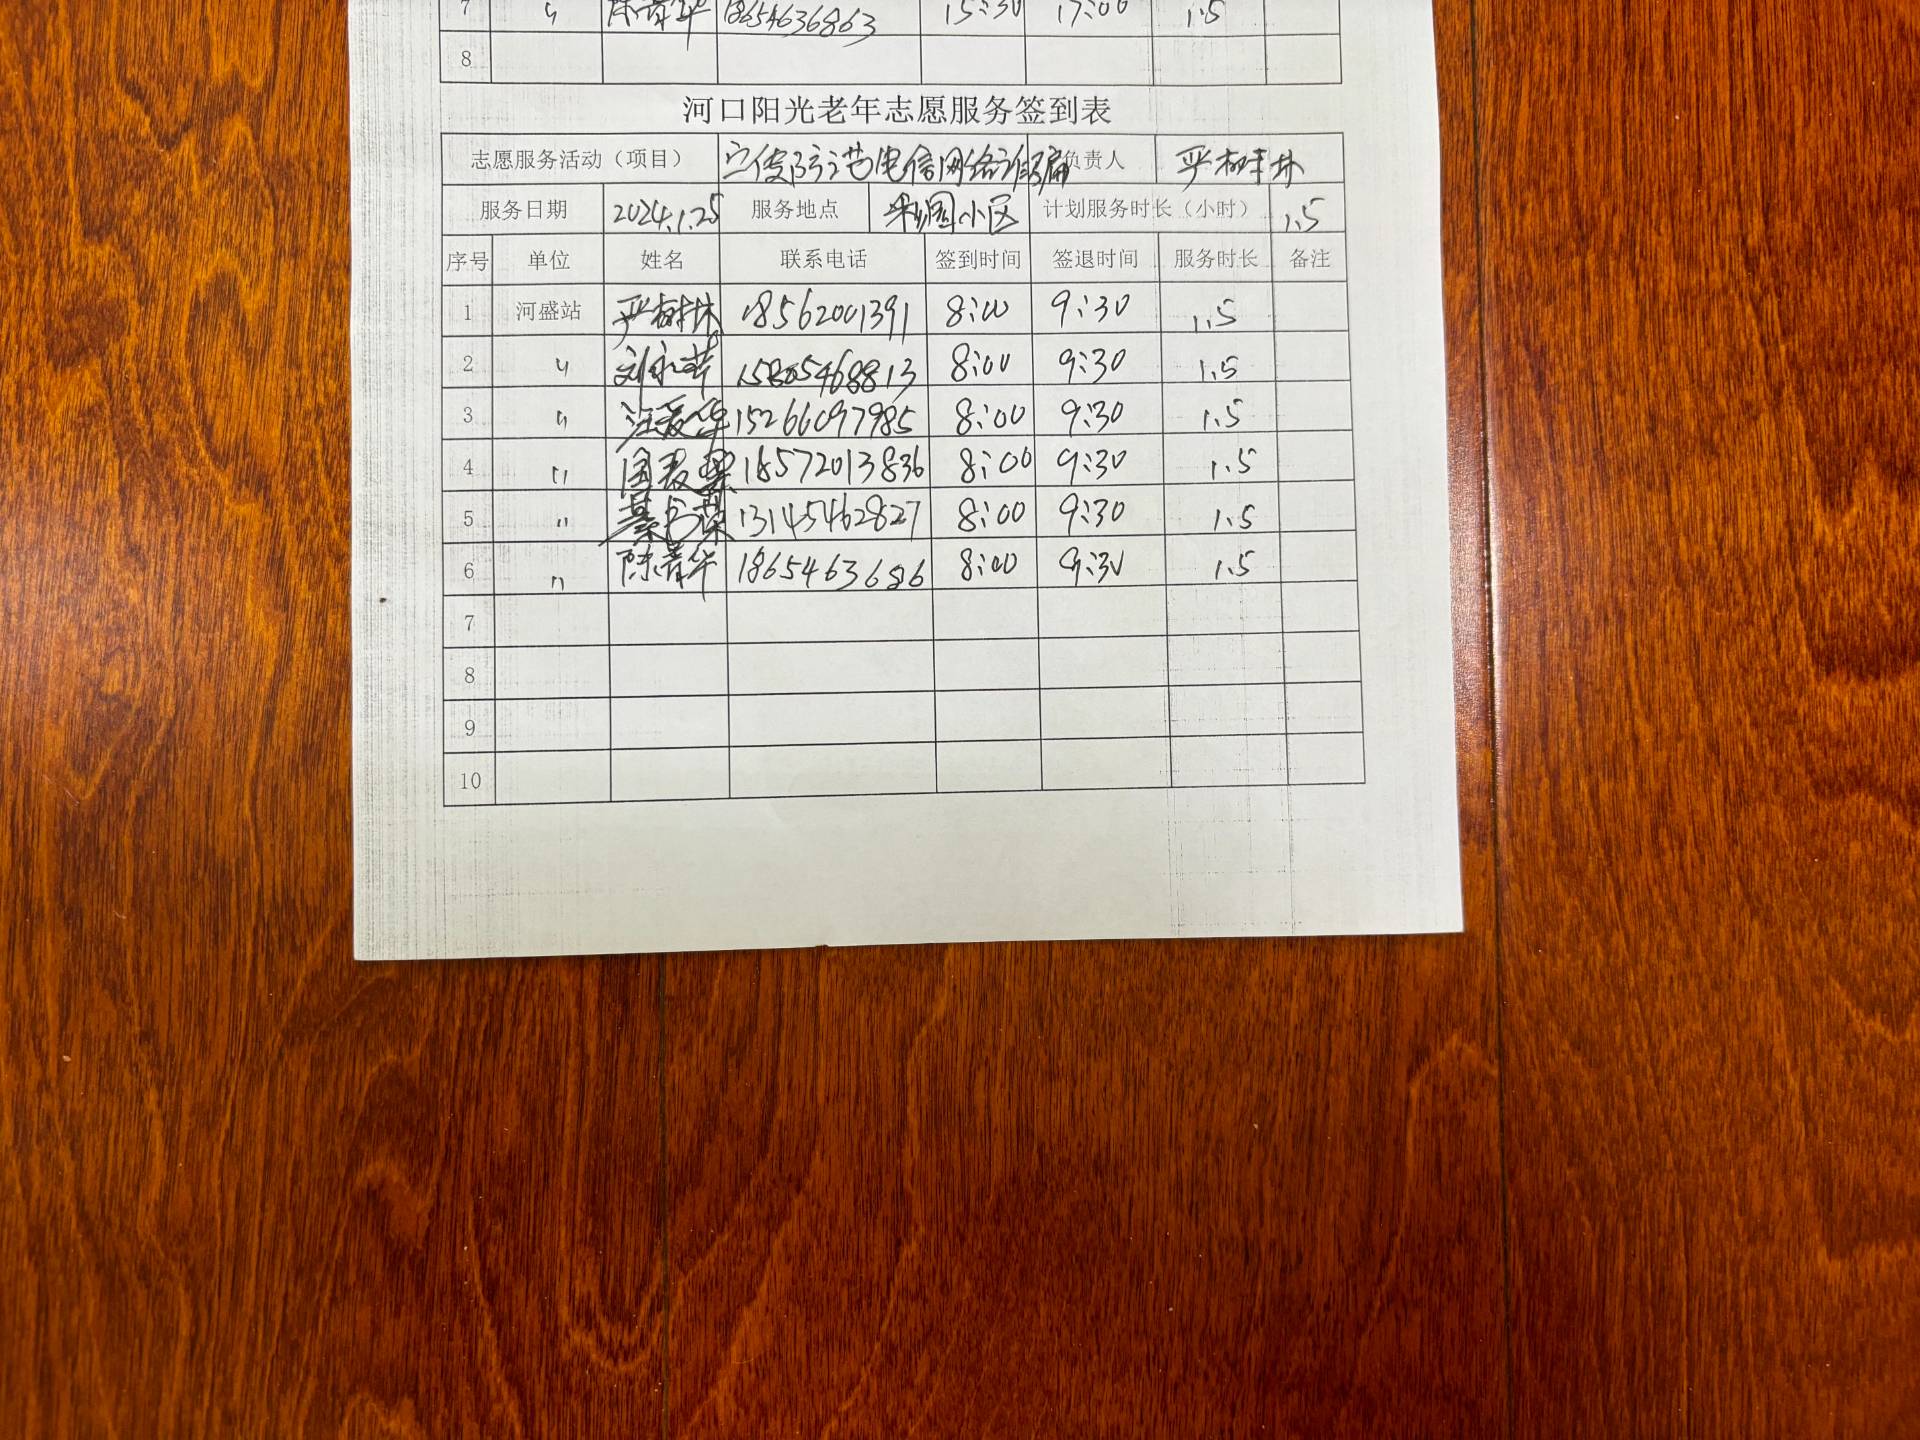 7 〃 陈青华 18654636863 15:30 17:00 1.5
8
河口阳光老年志愿服务签到表
志愿服务活动（项目） 宣传防范电信网络诈骗 负责人 严树林
服务日期 2024.1.25 服务地点 小区 计划服务时长（小时） 1.5
序号 单位 姓名 联系电话 签到时间 签退时间 服务时长 备注
1 河盛站 严树林 18562001391 8:00 9:30 1.5
2 〃 刘永萍 15805468813 8:00 9:30 1.5
3 〃 汪爱华 15266097985 8:00 9:30 1.5
4 〃 18572013836 8:00 9:30 1.5
5 〃 13145462827 8:00 9:30 1.5
6 〃 陈青华 18654636 8:00 9:30 1.5
7
8
9
10